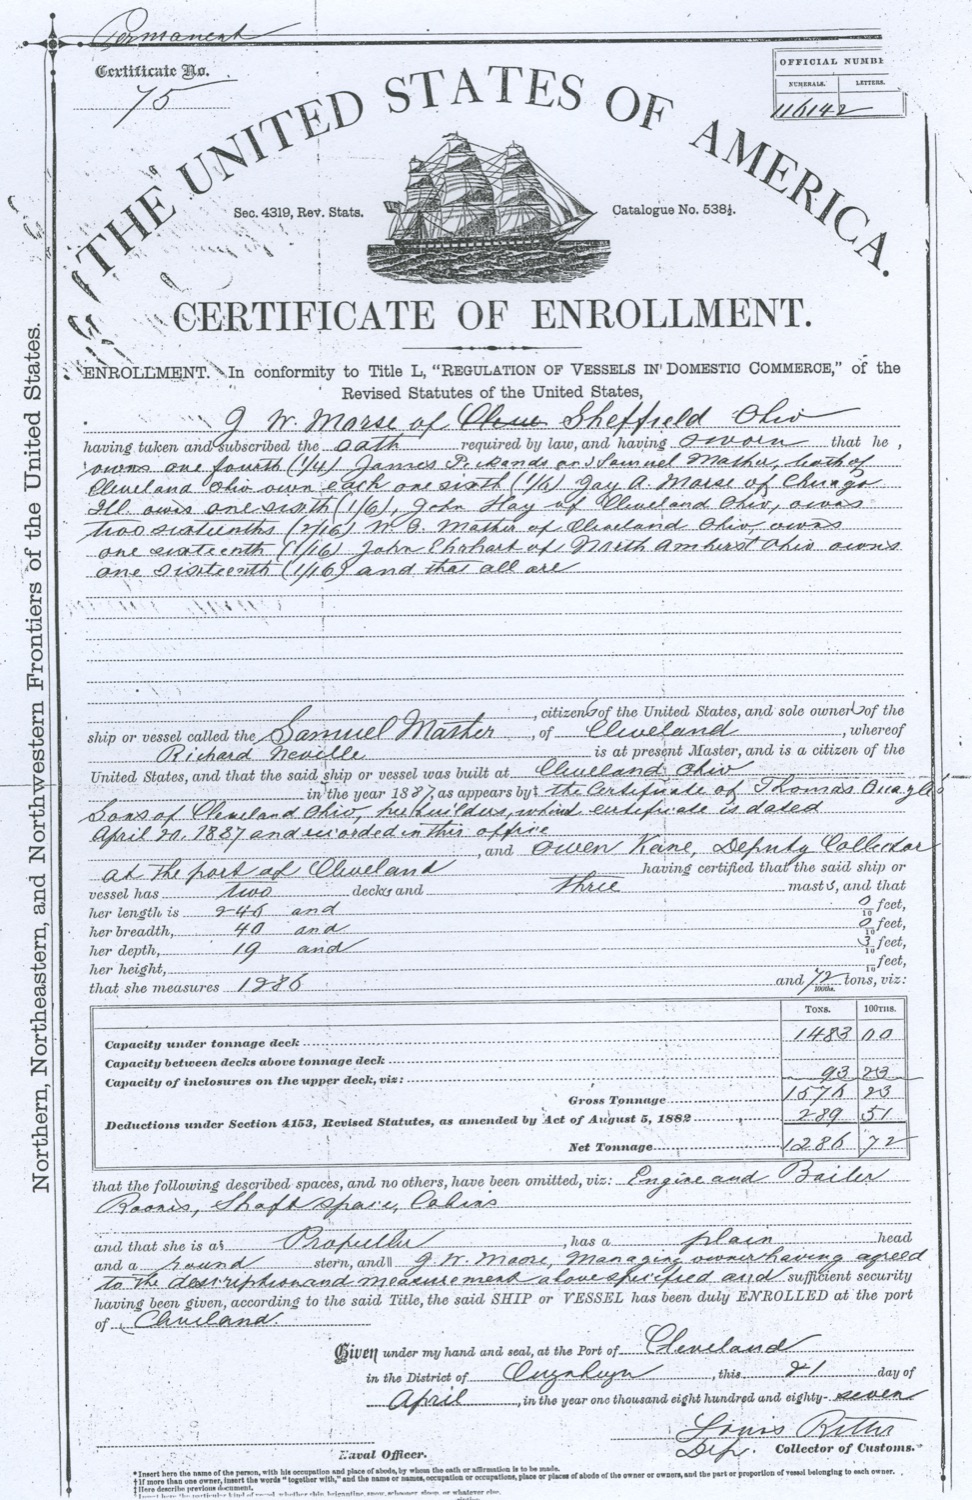 Permanent
Certificate No.
75
OFFICIAL NUMBE
NUMERALS. LETTERS.
116142
THE UNITED STATES OF AMERICA.
Sec. 4319, Rev. Stats. Catalogue No. 538½.
CERTIFICATE OF ENROLLMENT.
ENROLLMENT. In conformity to Title L, "REGULATION OF VESSELS IN DOMESTIC COMMERCE," of the
Revised Statutes of the United States,
J W. Morse of Sheffield Ohio
having taken and subscribed the oath required by law, and having sworn that he
owns one fourth (1/4) James Pickands and Samuel Mather, both of
Cleveland Ohio own each one sixth (1/6) Jay A. Morse of Chicago
Ill. owns one sixth (1/6), John Hay of Cleveland Ohio, owns
two sixteenths (2/16) W. G. Mather of Cleveland Ohio, owns
one sixteenth (1/16) John Ehrhart of North Amherst Ohio owns
one sixteenth (1/16) and that all are
, citizens of the United States, and sole owners of the
ship or vessel called the Samuel Mather, of Cleveland, whereof
Richard Neville is at present Master, and is a citizen of the
United States, and that the said ship or vessel was built at Cleveland Ohio
in the year 1887, as appears by† the Certificate of Thomas Quayle's
Sons of Cleveland Ohio, her builders, which certificate is dated
April 20, 1887 and recorded in this office
, and Owen Kane, Deputy Collector
at the port of Cleveland having certified that the said ship or
vessel has two decks and three masts, and that
her length is 246 and 0/10 feet,
her breadth, 40 and 0/10 feet,
her depth, 19 and 3/10 feet,
her height, /10 feet,
that she measures 1286 and 72/100ths. tons, viz:
TONS. 100THS.
Capacity under tonnage deck 1483 00
Capacity between decks above tonnage deck
Capacity of inclosures on the upper deck, viz: 93 23
Gross Tonnage 1576 23
Deductions under Section 4153, Revised Statutes, as amended by Act of August 5, 1882 289 51
Net Tonnage 1286 72
that the following described spaces, and no others, have been omitted, viz: Engine and Boiler
Rooms, Shaft space, Cabins
and that she is a§ Propeller, has a plain head
and a round stern, and‖ J. W. Moore, Managing owner having agreed
to the description and measurement above specified and sufficient security
having been given, according to the said Title, the said SHIP or VESSEL has been duly ENROLLED at the port
of Cleveland
Given under my hand and seal, at the Port of Cleveland
in the District of Cuyahoga, this 21 day of
April, in the year one thousand eight hundred and eighty-seven
Louis Ritter
Naval Officer. Dep. Collector of Customs.
*Insert here the name of the person, with his occupation and place of abode, by whom the oath or affirmation is to be made.
†If more than one owner, insert the words "together with," and the name or names, occupation or occupations, place or places of abode of the owner or owners, and the part or proportion of vessel belonging to each owner.
‡Here describe previous document.
Northern, Northeastern, and Northwestern Frontiers of the United States.